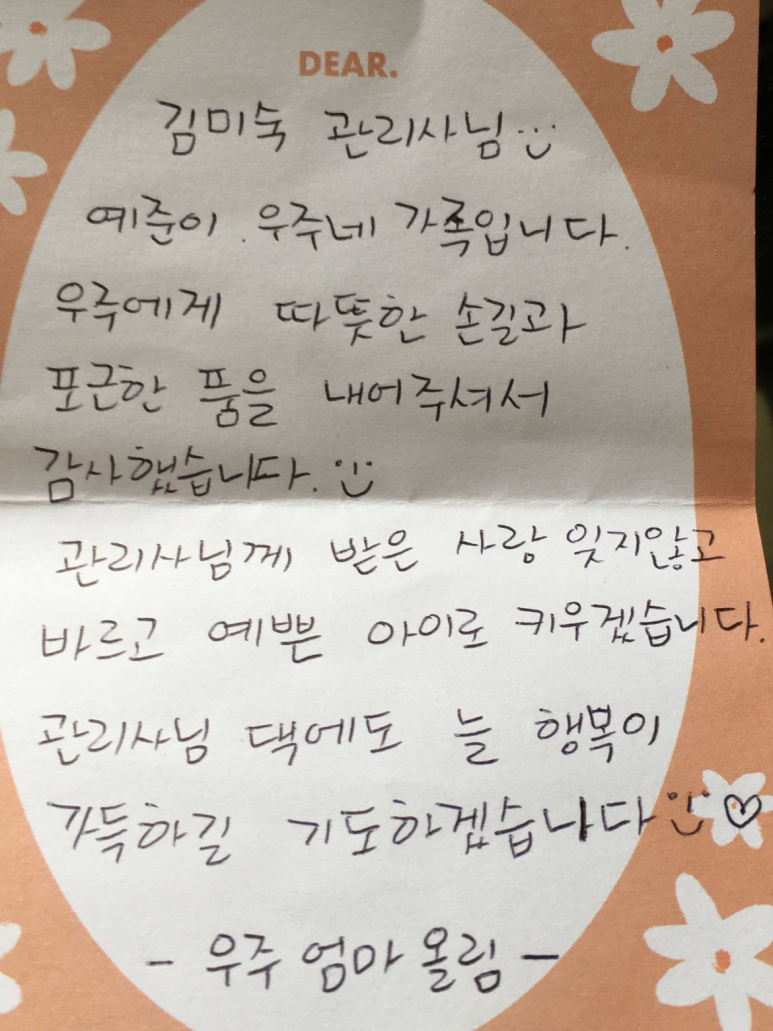 DEAR.
김미숙 관리사님 :)
예준이. 우주네 가족입니다.
우주에게 따뜻한 손길과
포근한 품을 내어주셔서
감사했습니다. :)
관리사님께 받은 사랑 잊지않고
바르고 예쁜 아이로 키우겠습니다.
관리사님 댁에도 늘 행복이
가득하길 기도하겠습니다 :) ♡
- 우주 엄마 올림 -